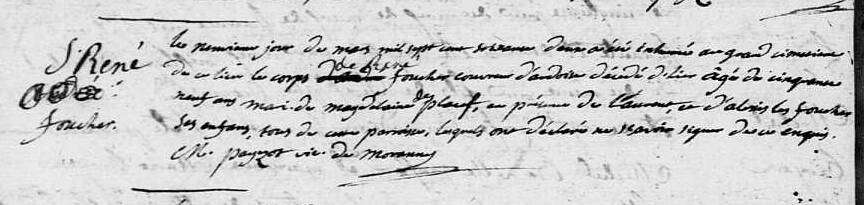 S. René
foucher.
Le neuvieme jour de mars mil sept cent soixante deux a été inhumé au grand cimetiere
de ce lieu le corps de René foucher couvreur d'ardoise décédé d'hier âgé de cinquante
neuf ans mari de magdelaine plouf, en présence de laurent et d' les foucher
ses enfans, tous de cette paroisse, lesquels ont déclaré ne sçavoir signer de ce enquis.
M. pagnot vic. de morannes